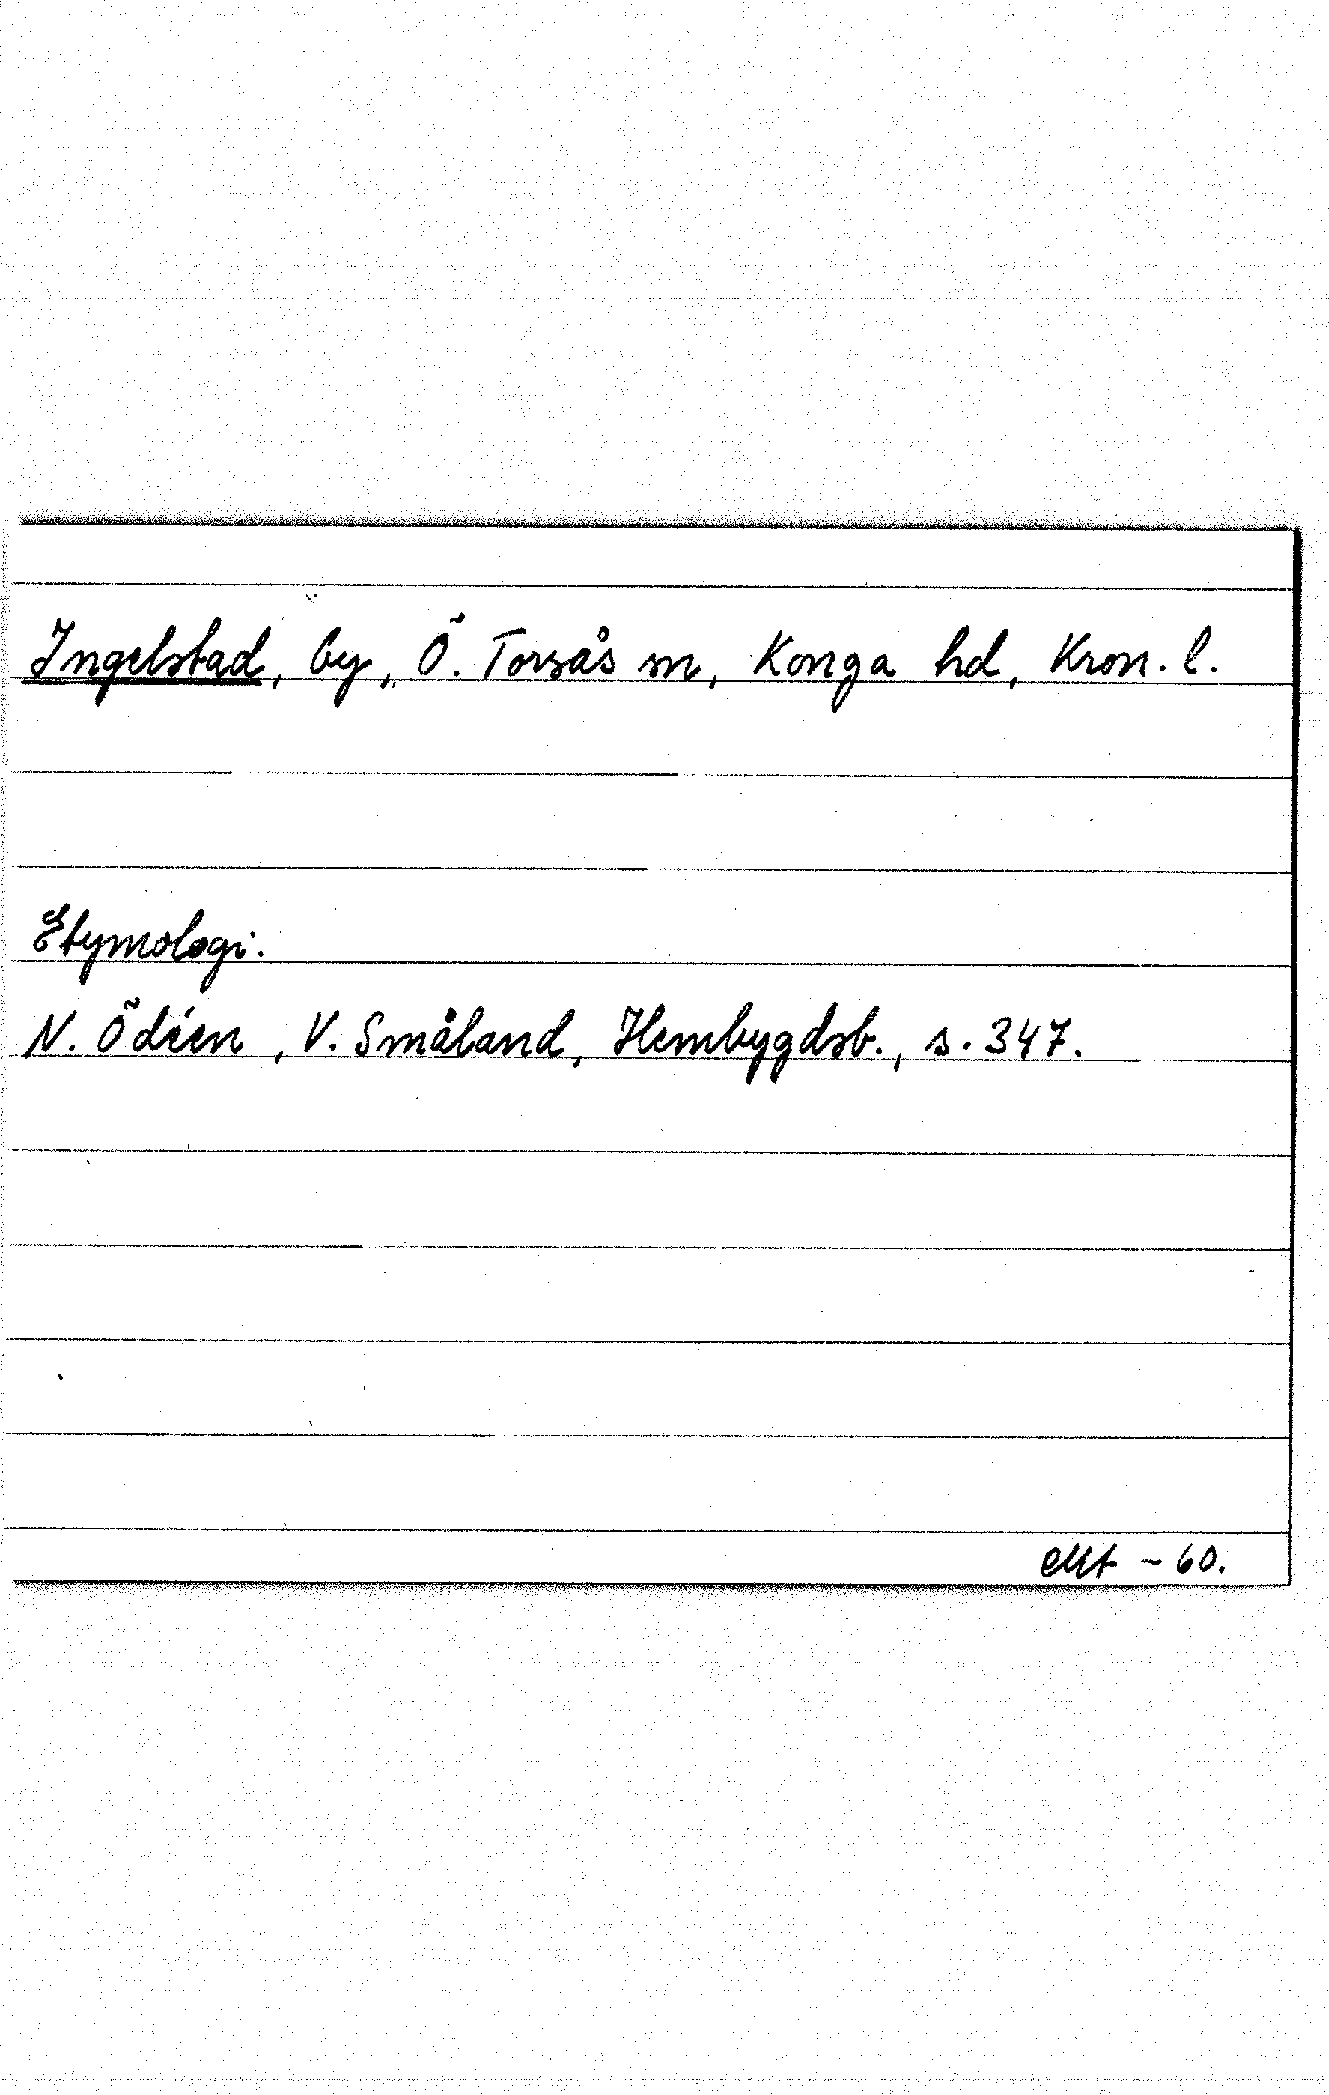 Ingelstad, by, Ö. Torsås sn, Konga hd, Kron. l.
Etymologi.
N. Ödéen, V. Småland, Hembygdsb., s. 347.
- 60.